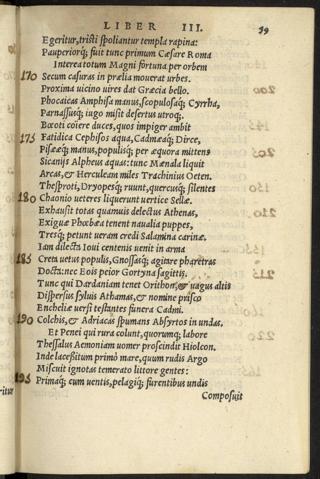 LIBER III. 39
Egeritur, tristi spoliantur templa rapina:
Pauperiorq; fuit tunc primum Cæsare Roma
Interea totum Magni fortuna per orbem
170 Secum casuras in prælia moverat urbes.
Proxima uicino uires dat Græcia bello.
Phocaicas Amphisa manus, scopulosaq; Cyrrha,
Parnassusq; iugo misit desertus utroq;.
Bœoti coiere duces, quos impiger ambit
175 Fatidica Cephisos aqua, Cadmæaq; Dirce,
Pisææq; manus, populisq; per æquora mittens
Sicanijs Alpheus aquas: tunc Mænala liquit
Arcas, & Herculeam miles Trachinius Oeten.
Thesproti, Dryopesq; ruunt, quercusq; silentes
180 Chaonio ueteres liquerunt uertice Sellæ.
Exhausit totas quamuis delectus Athenas,
Exiguæ Phœbæa tenent naualia puppes,
Tresq; petunt ueram credi Salamina carinæ.
Iam dilecta Ioui centenis uenit in arma
185 Creta uetus populis, Gnossasq; agitare pharetras
Docta: nec Eois peior Gortyna sagittis.
Tunc qui Dardaniam tenet Orithon, & uagus altis
Dispersus syluis Athamas, & nomine prisco
Encheliæ uersi testantes funera Cadmi.
190 Colchis, & Adriacas spumans Absyrtos in undas,
Et Penei qui rura colunt, quorumq; labore
Thessalus Aemoniam uomer proscindit Hiolcon.
Inde lacessitum primò mare, quum rudis Argo
Miscuit ignotas temerato littore gentes:
195 Primaq; cum uentis, pelagiq; furentibus undis
Composuit